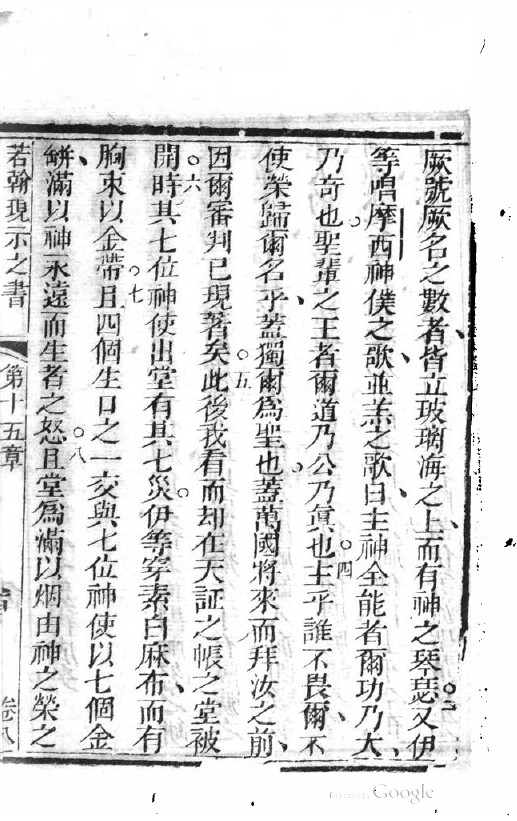 厥號厥名之數者、皆立玻璃海之上、而有神之琴瑟○三又伊
等唱摩西神僕之歌、並羔之歌、曰主神全能者爾功乃大、
乃奇也。聖輩之王者爾道乃公乃眞也○四主乎誰不畏爾、不
使榮歸爾名乎、蓋獨爾爲聖也。蓋萬國將來而拜汝之前、
因爾審判已現著矣○五此後我看而却在天証之帳之堂被
開時○六其七位神使出堂有其七災。伊等穿素白麻布、而有
胸束以金帶○七且四個生口之一交與七位神使以七個金
缾、滿以神永遠而生者之怒○八且堂爲滿以烟由神之榮之
若翰現示之書
第十五章
卷八
Digitized by Google